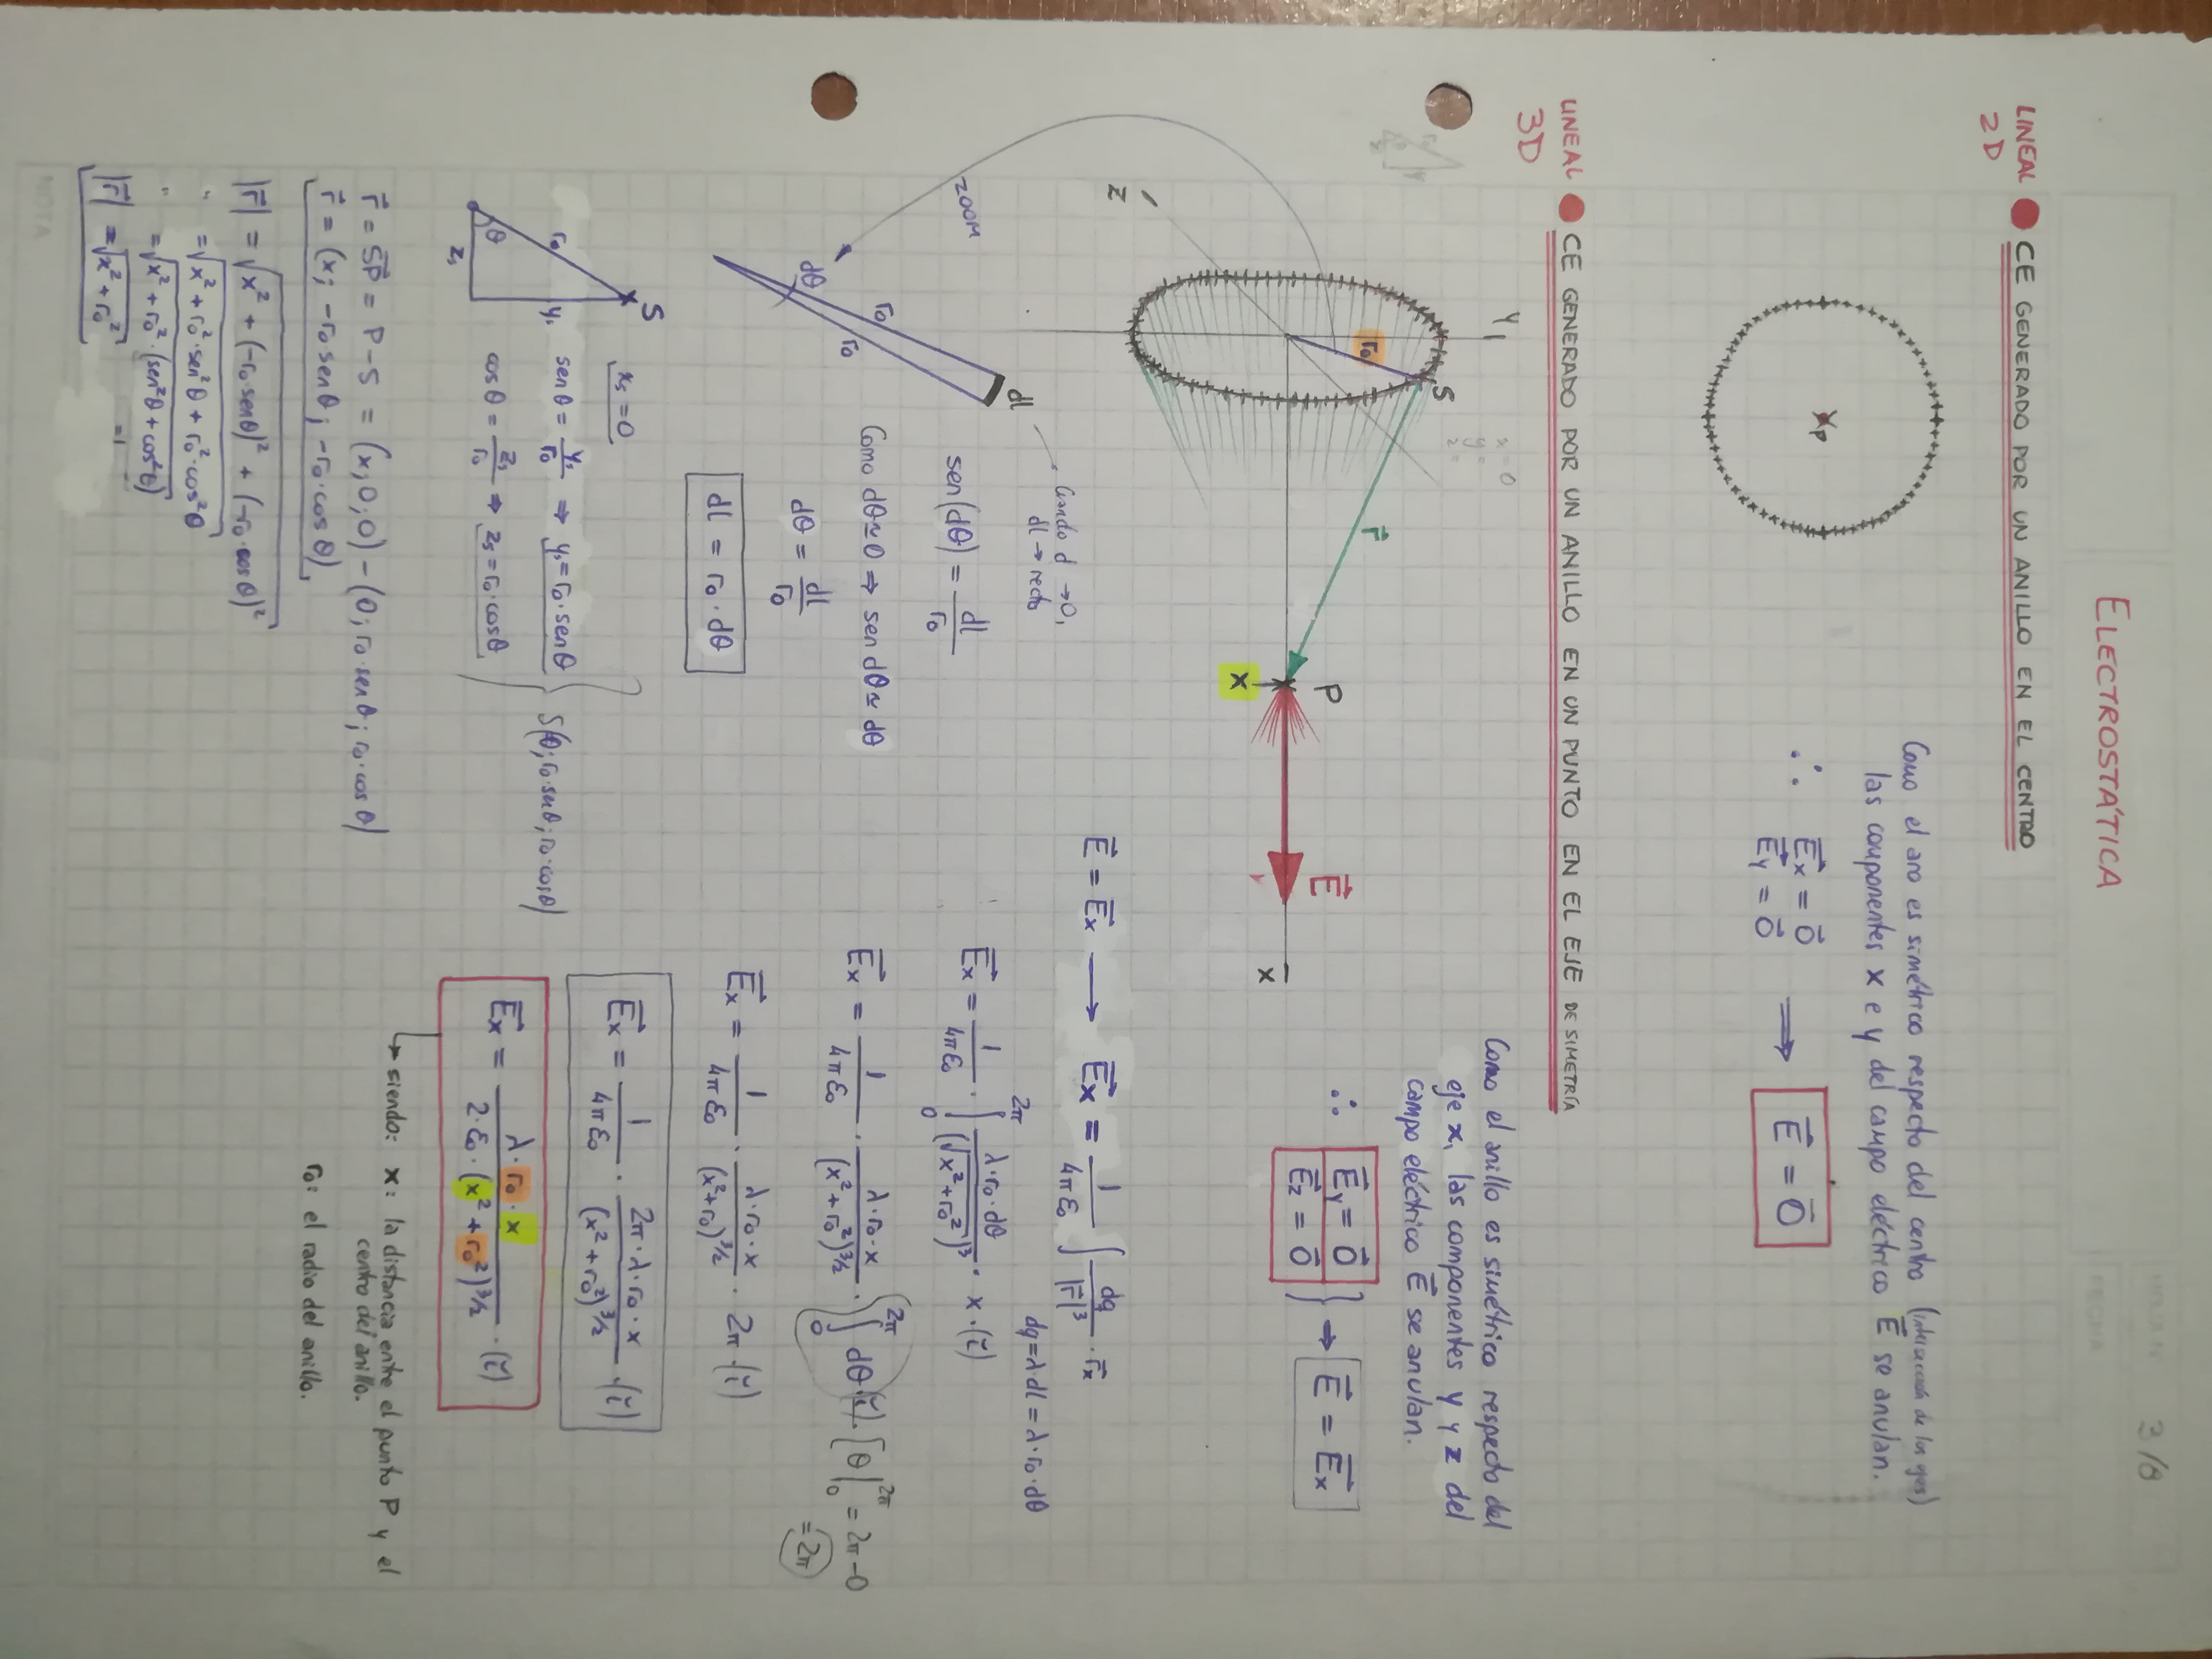 HOJA Nº 3/8
FECHA
ELECTROSTÁTICA
LINEAL 2D ● CE GENERADO POR UN ANILLO EN EL CENTRO
Como el aro es simétrico respecto del centro (intersección de los ejes)
las componentes x e y del campo eléctrico E⃗ se anulan.
∴ E⃗x = 0⃗
E⃗y = 0⃗ ⟹ E⃗ = 0⃗
P
LINEAL 3D ● CE GENERADO POR UN ANILLO EN UN PUNTO EN EL EJE DE SIMETRÍA
Como el anillo es simétrico respecto del
eje x, las componentes y y z del
campo eléctrico E⃗ se anulan.
∴ E⃗y = 0⃗
E⃗z = 0⃗ } → E⃗ = E⃗x
x = 0
y =
z =
y
S
r0
r⃗
P
x
E⃗
x
z
ZOOM
dl
r0
r0
dθ
Cuando d →0,
dl → recto
sen(dθ) = dl/r0
Como dθ≃0 ⇒ sen dθ ≃ dθ
dθ = dl/r0
dl = r0 · dθ
S
r0
ys
θ
zs
xs = 0
sen θ = ys/r0 ⇒ ys = r0·senθ
cos θ = zs/r0 ⇒ zs = r0·cosθ
S(0; r0·senθ; r0·cosθ)
r⃗ = S⃗P = P - S = (x; 0; 0) - (0; r0·senθ; r0·cosθ)
r⃗ = (x; -r0·senθ; -r0·cosθ)
|r⃗| = √(x² + (-r0·senθ)² + (-r0·cosθ)²)
" = √(x² + r0²·sen²θ + r0²·cos²θ)
" = √(x² + r0²·(sen²θ + cos²θ))
=1
|r⃗| = √(x² + r0²)
E⃗ = E⃗x ⟶ E⃗x = 1/(4πε0) ∫ dq/|r⃗|³ · r⃗x
dq = λ·dl = λ·r0·dθ
E⃗x = 1/(4πε0) · ∫₀^2π λ·r0·dθ/(√(x²+r0²))³ · x·(ĭ)
E⃗x = 1/(4πε0) · λ·r0·x/(x²+r0²)^3/2 · ∫₀^2π dθ·(ĭ) · [θ|₀^2π = 2π-0
= 2π
E⃗x = 1/(4πε0) · λ·r0·x/(x²+r0)^3/2 · 2π·(ĭ)
E⃗x = 1/(4πε0) · 2π·λ·r0·x/(x²+r0²)^3/2 · (ĭ)
E⃗x = λ·r0·x/(2·ε0·(x²+r0²)^3/2) · (ĭ)
↳ siendo: x: la distancia entre el punto P y el
centro del anillo.
r0: el radio del anillo.
NOTA